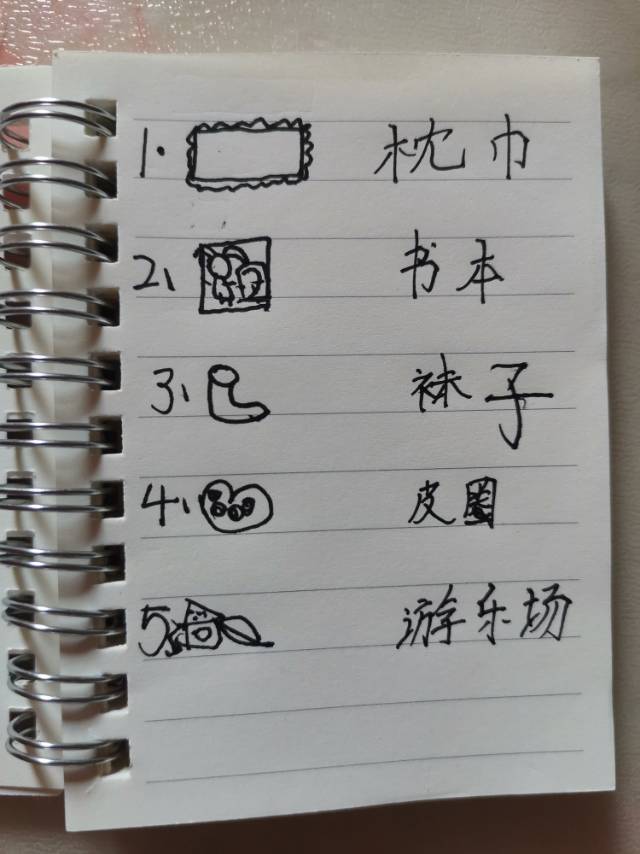 1. 枕巾
2、 书本
3、 袜子
4、 皮圈
5、 游乐场